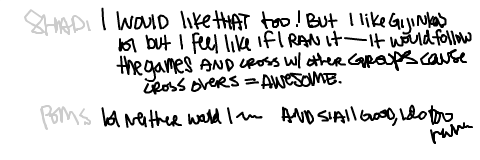 SHADI I WOULD like THAT too! BUT I like Gijinkas
lol but I feel like if I RAN it — it would follow
the games AND cross w/ other GROUPS cause
cross overs = AWESOME.
POMS lol neither would I ~ AND s'all Good, I do too